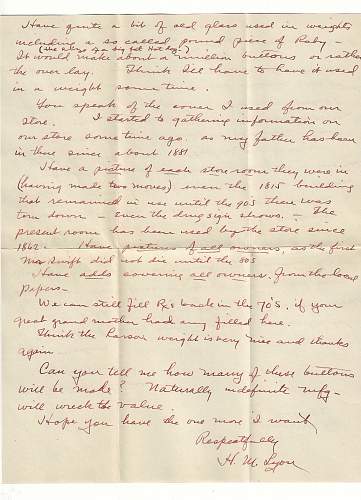 Have quite a bit of old glass used in weights
including a so called pound piece of Ruby -
(the size of a big fat Hot dog)
It would make about a million buttons or rather
the over lay. Think I'll have to have it used
in a weight some time.
You speak of the cover I used from our
store. I started to gathering information on
our store sometime ago as my father has been
in there since about 1881.
Have a picture of each store room they were in
(having made two moves) even the 1815 building
that remained in use until the 90s then was
torn down - even the drug sign shows. - The
present room has been used by the store since
1862. Have pictures of all owners, as the first
Mr. Swift did not die until the 80s
Have adds covering all owners, from the local
papers -
We can still fill Rx's back in the 70's, if your
great grand mother had any filled here.
Think the Larson weight is very nice and thanks
again -
Can you tell me how many of these buttons
will be made? Naturally indefinite mfg -
will wreck the value.
Hope you have the one more I want,
Respectfully
H. M. Lyon